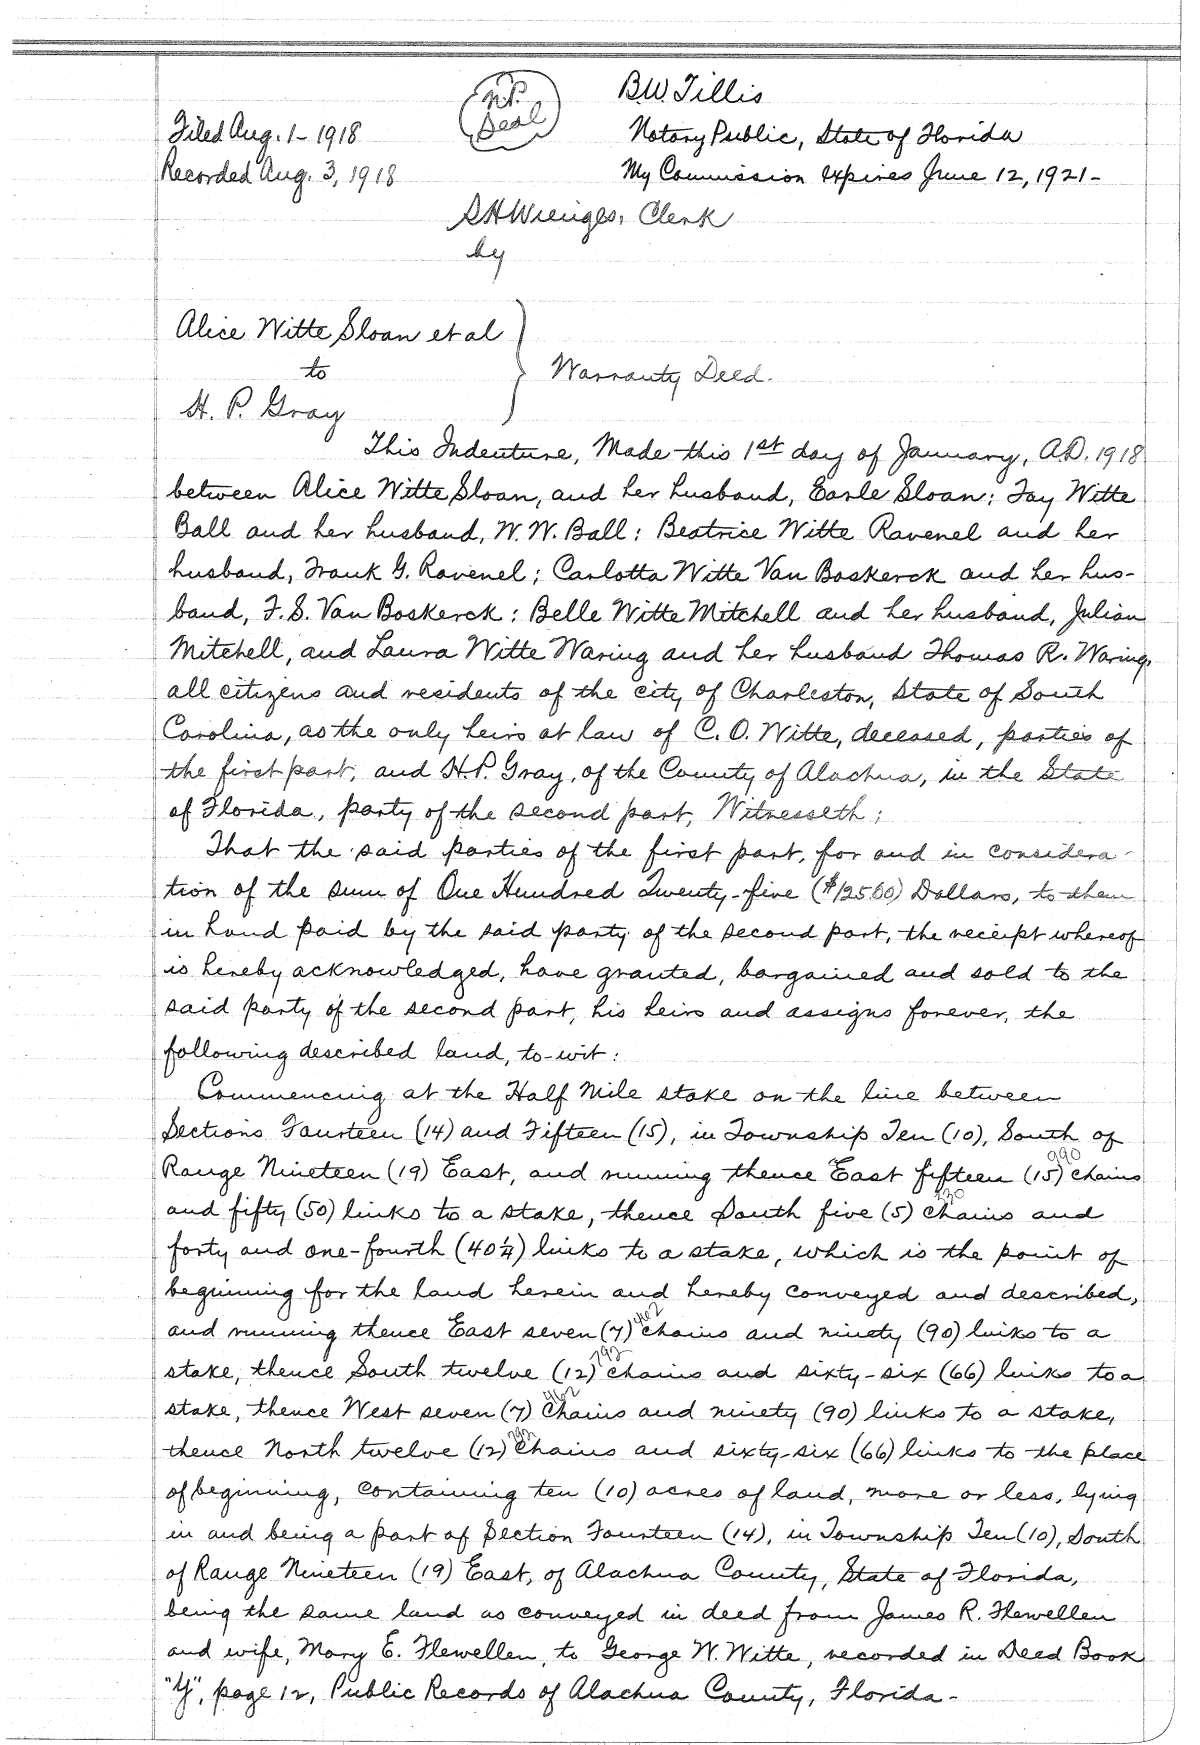 B.W. Tillis
N.P.
Seal
Filed Aug. 1- 1918
Notary Public, State of Florida
Recorded Aug. 3, 1918
My Commission expires June 12, 1921-
S H Wienges, Clerk
by
Alice Witte Sloan et al
to
Warranty Deed.
H. P. Gray
This Indenture, Made this 1st day of January, A.D. 1918
between Alice Witte Sloan, and her husband, Earle Sloan; Fay Witte
Ball and her husband, W. W. Ball; Beatrice Witte Ravenel and her
husband, Frank G. Ravenel; Carlotta Witte Van Boskerck and her hus-
band, F. S. Van Boskerck; Belle Witte Mitchell and her husband, Julian
Mitchell, and Laura Witte Waring and her husband Thomas R. Waring,
all citizens and residents of the city of Charleston, State of South
Carolina, as the only heirs at law of C. O. Witte, deceased, parties of
the first part, and H. P. Gray, of the County of Alachua, in the State
of Florida, party of the second part, Witnesseth;
That the said parties of the first part, for and in considera-
tion of the sum of One Hundred Twenty-five ($125.00) Dollars, to them
in hand paid by the said party of the second part, the receipt whereof
is hereby acknowledged, have granted, bargained and sold to the
said party of the second part, his heirs and assigns forever, the
following described land, to-wit:
Commencing at the Half Mile stake on the line between
Sections Fourteen (14) and Fifteen (15), in Township Ten (10), South of
990
Range Nineteen (19) East, and running thence East fifteen (15) chains
330
and fifty (50) links to a stake, thence South five (5) chains and
forty and one-fourth (40 1/4) links to a stake, which is the point of
beginning for the land herein and hereby conveyed and described,
462
and running thence East seven (7) chains and ninety (90) links to a
792
stake, thence South twelve (12) chains and sixty-six (66) links to a
462
stake, thence West seven (7) chains and ninety (90) links to a stake,
792
thence North twelve (12) chains and sixty-six (66) links to the place
of beginning, containing ten (10) acres of land, more or less, lying
in and being a part of Section Fourteen (14), in Township Ten (10), South
of Range Nineteen (19) East, of Alachua County, State of Florida,
being the same land as conveyed in deed from James R. Flewellen
and wife, Mary E. Flewellen, to George W. Witte, recorded in Deed Book
"Y", page 12, Public Records of Alachua County, Florida-